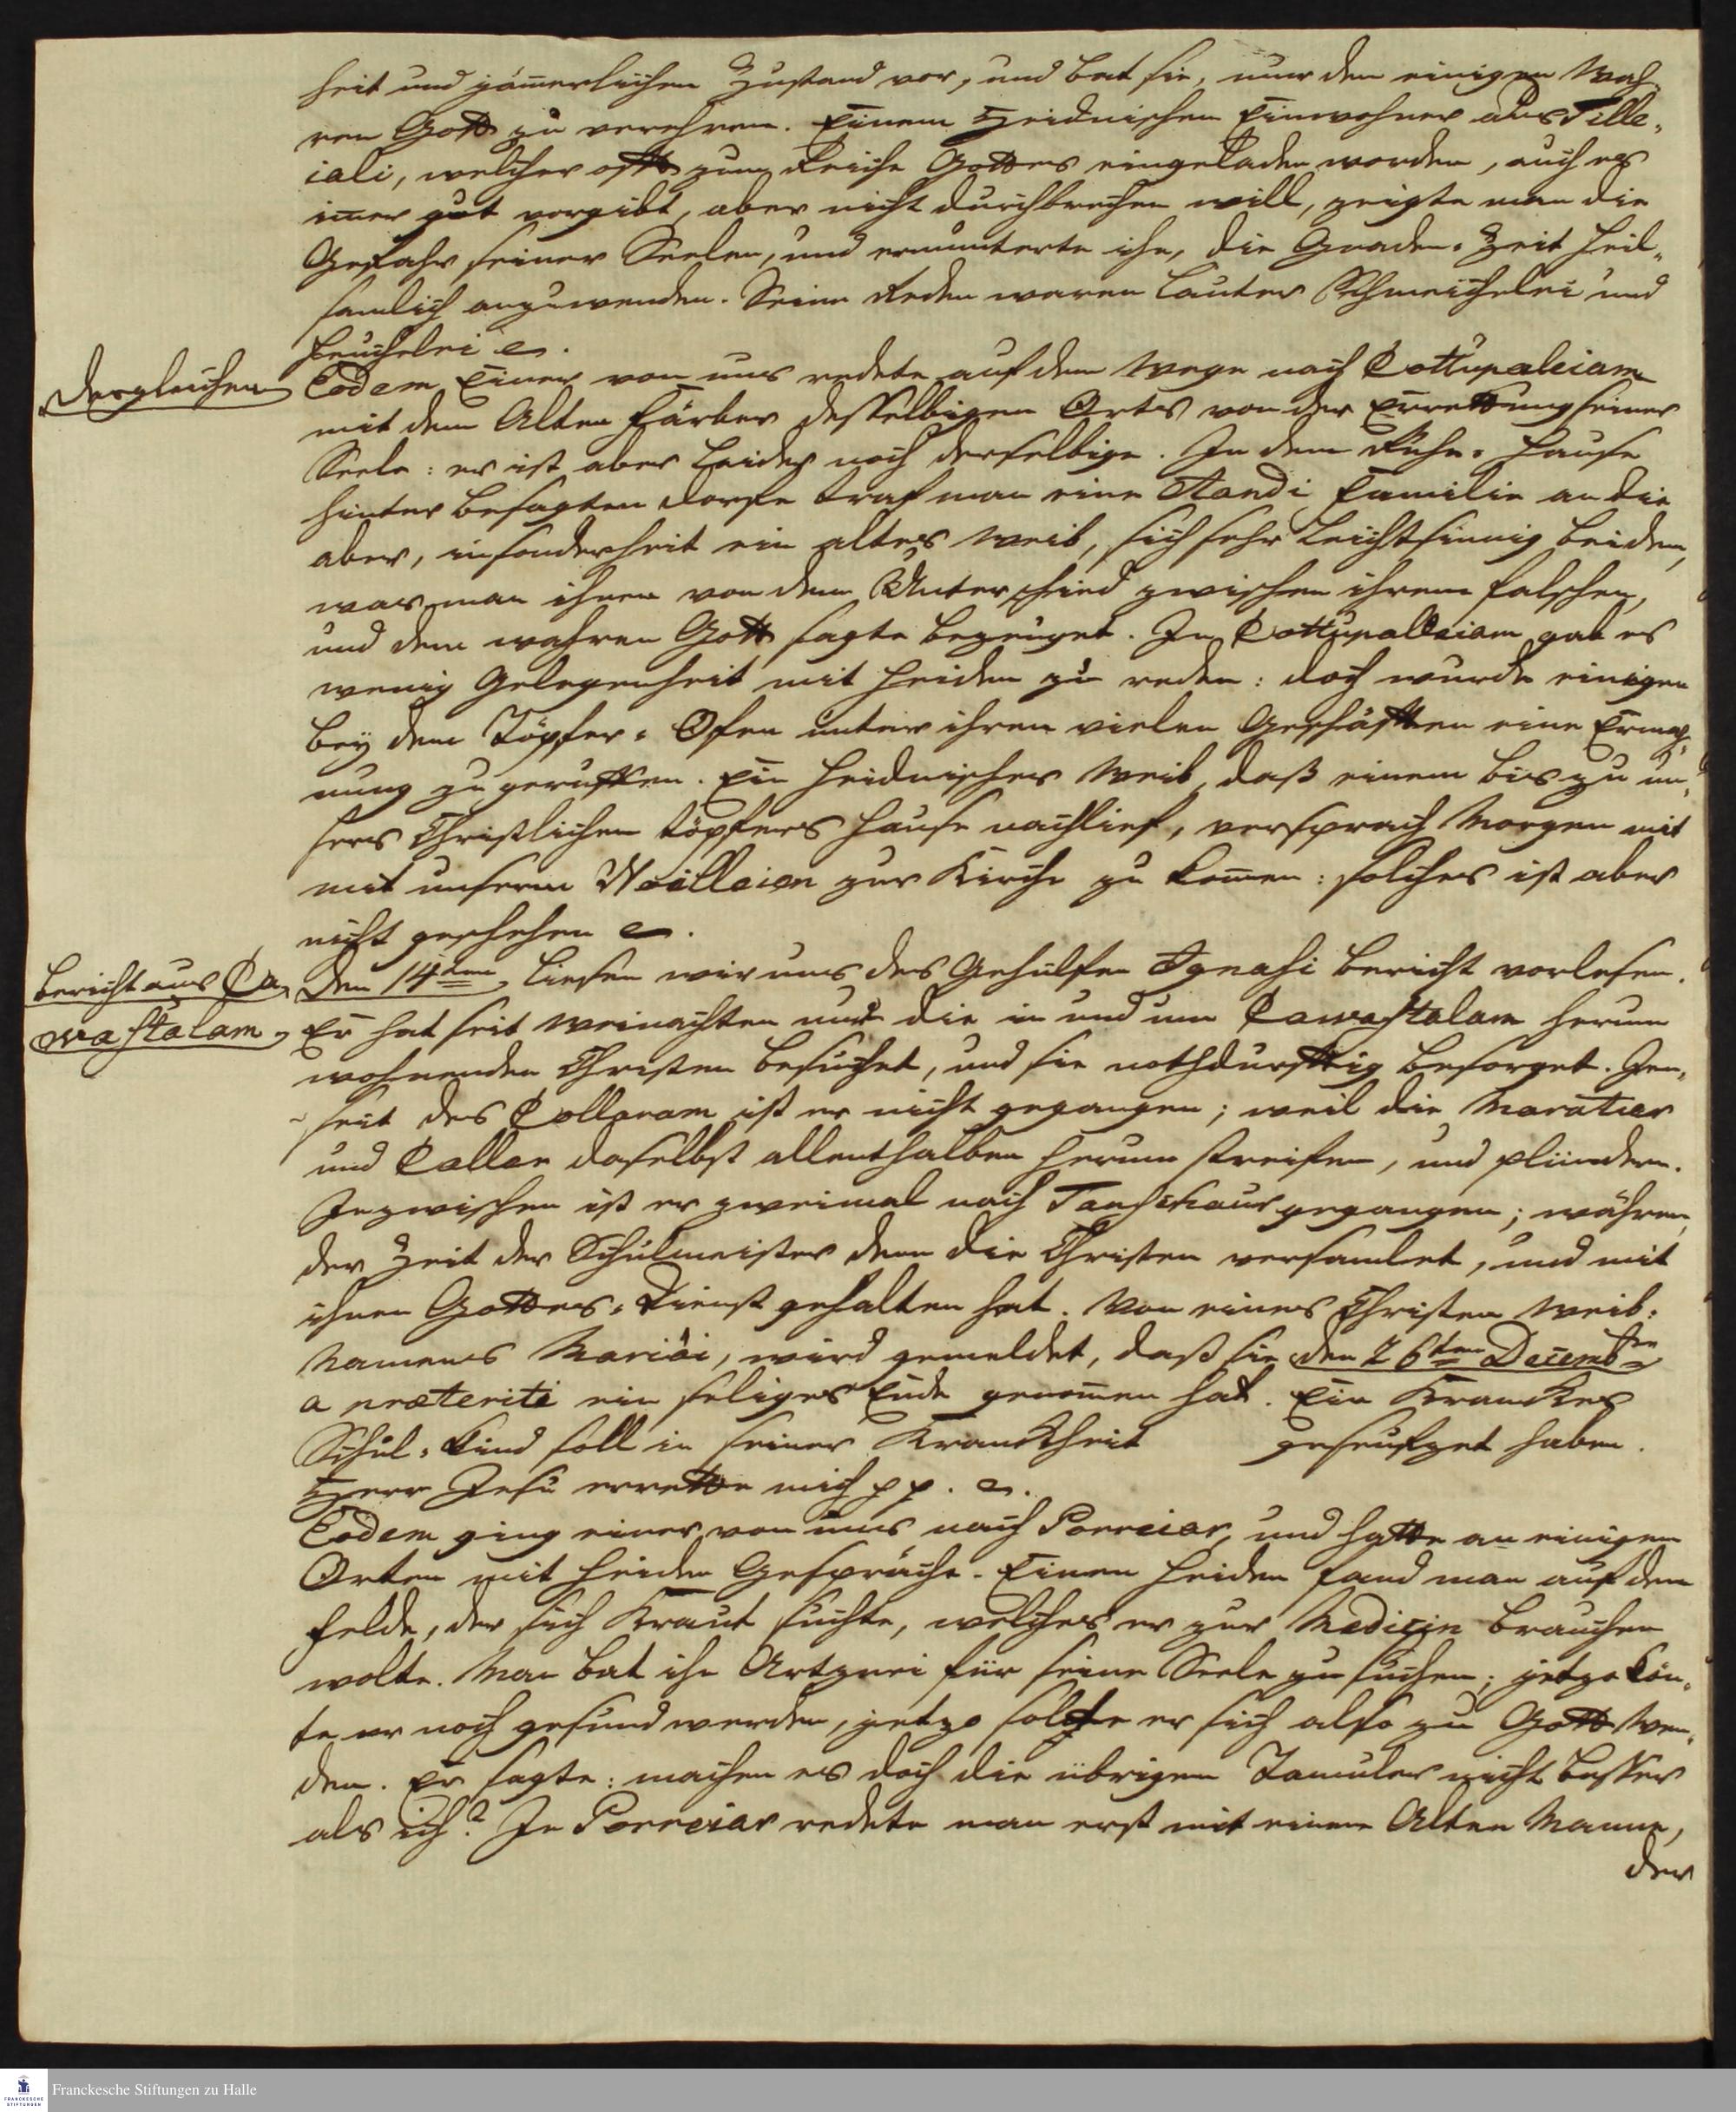 heit und jam̄erlichen Zustand vor, und bat sie, nur den einigen wah-
ren Gott zu verehren. Einem Heidnischen Einwohner aus Tille-
iali, welcher offt zum Reiche Gottes eingeladen worden, auch es
im̄er gut vorgibt, aber nicht durchbrechen will, zeigte man die
Gefahr seiner Seelen, und ermunterte ihn, die Gnaden-Zeit heil-
samlich anzuwenden. Seine Reden waren lauter Schmeichelei und
Heuchelei e.
Dergleichen
Eodem Einer von uns redete auf dem Wege nach Cottupaleiam
mit dem Alten Färber desselbigen Orts von der Errettung seiner
Seele: er ist aber leider noch derselbige. In dem Ruhe-Hause
hinter besagten Dorfe traf man eine Aandi Familie an die
aber, insonderheit ein altes Weib, sich sehr leichtsinnig beidem,
was man ihnen von dem Unterschied zwischen ihrem falschen,
und dem wahren Gott sagte bezeuget. In Cottupalleiam gab es
wenig Gelegenheit mit Heiden zu reden: doch wurde einigen
bey dem Töpfer-Ofen unter ihren vielen Geschäfften eine Ermah-
nung zugeruffen. Ein heidnisches Weib, daß einem bis zu un-
sers Christlichen töpfers Hause nachlief, versprach Morgen mit
mit unserm Weilleien zur Kirche zu kom̄en: solches ist aber
nicht geschehen e.
Bericht aus Ca-
wastalam.
Den 14ten liesen wir uns des Gehülfen Ignasi Bericht vorlesen.
Er hat seit Weinachten nur die in und um Cawastalam herum
wohnenden Christen besuchet, und sie nothdurfftig besorget. Jen-
seit des Colleram ist er nicht gegangen; weil die Maratier
und Caller daselbst allenthalben herum streifen, und plündern.
Inzwischen ist er zweimal nach Tanschaur gegangen; währen-
der Zeit der Schulmeister denn die Christen versamlet, und mit
ihnen Gottes-Dienst gehalten hat. Von eines Christen Weib:
Namens Mariäi, wird gemeldet, daß sie den 26ten Decembr
a præteriti ein seliges Ende genom̄en hat. Ein Kranckes
Schul-Kind soll in seiner Kranckheit geseufzet haben.
Herr Jesu errette mich pp. e.
Eodem ging einer von uns nach Porreiar, und hatte an einigen
Orten mit Heiden Gespräche. Einen Heiden fand man auf dem
Felde, der sich Kraut suchte, welches er zur Medicin brauchen
wolte. Man bat ihn Artznei für seine Seele zu suchen; jetzo kön-
te er noch gesund werden, jetzo solte er sich also zu Gott wen-
den. Er sagte: machen es doch die übrigen Tamuler nicht besser
als ich? In Porreiar redete man erst mit einem Alten Manne,
der
Franckesche Stiftungen zu Halle
FRANCKESCHE
STIFTUNGEN